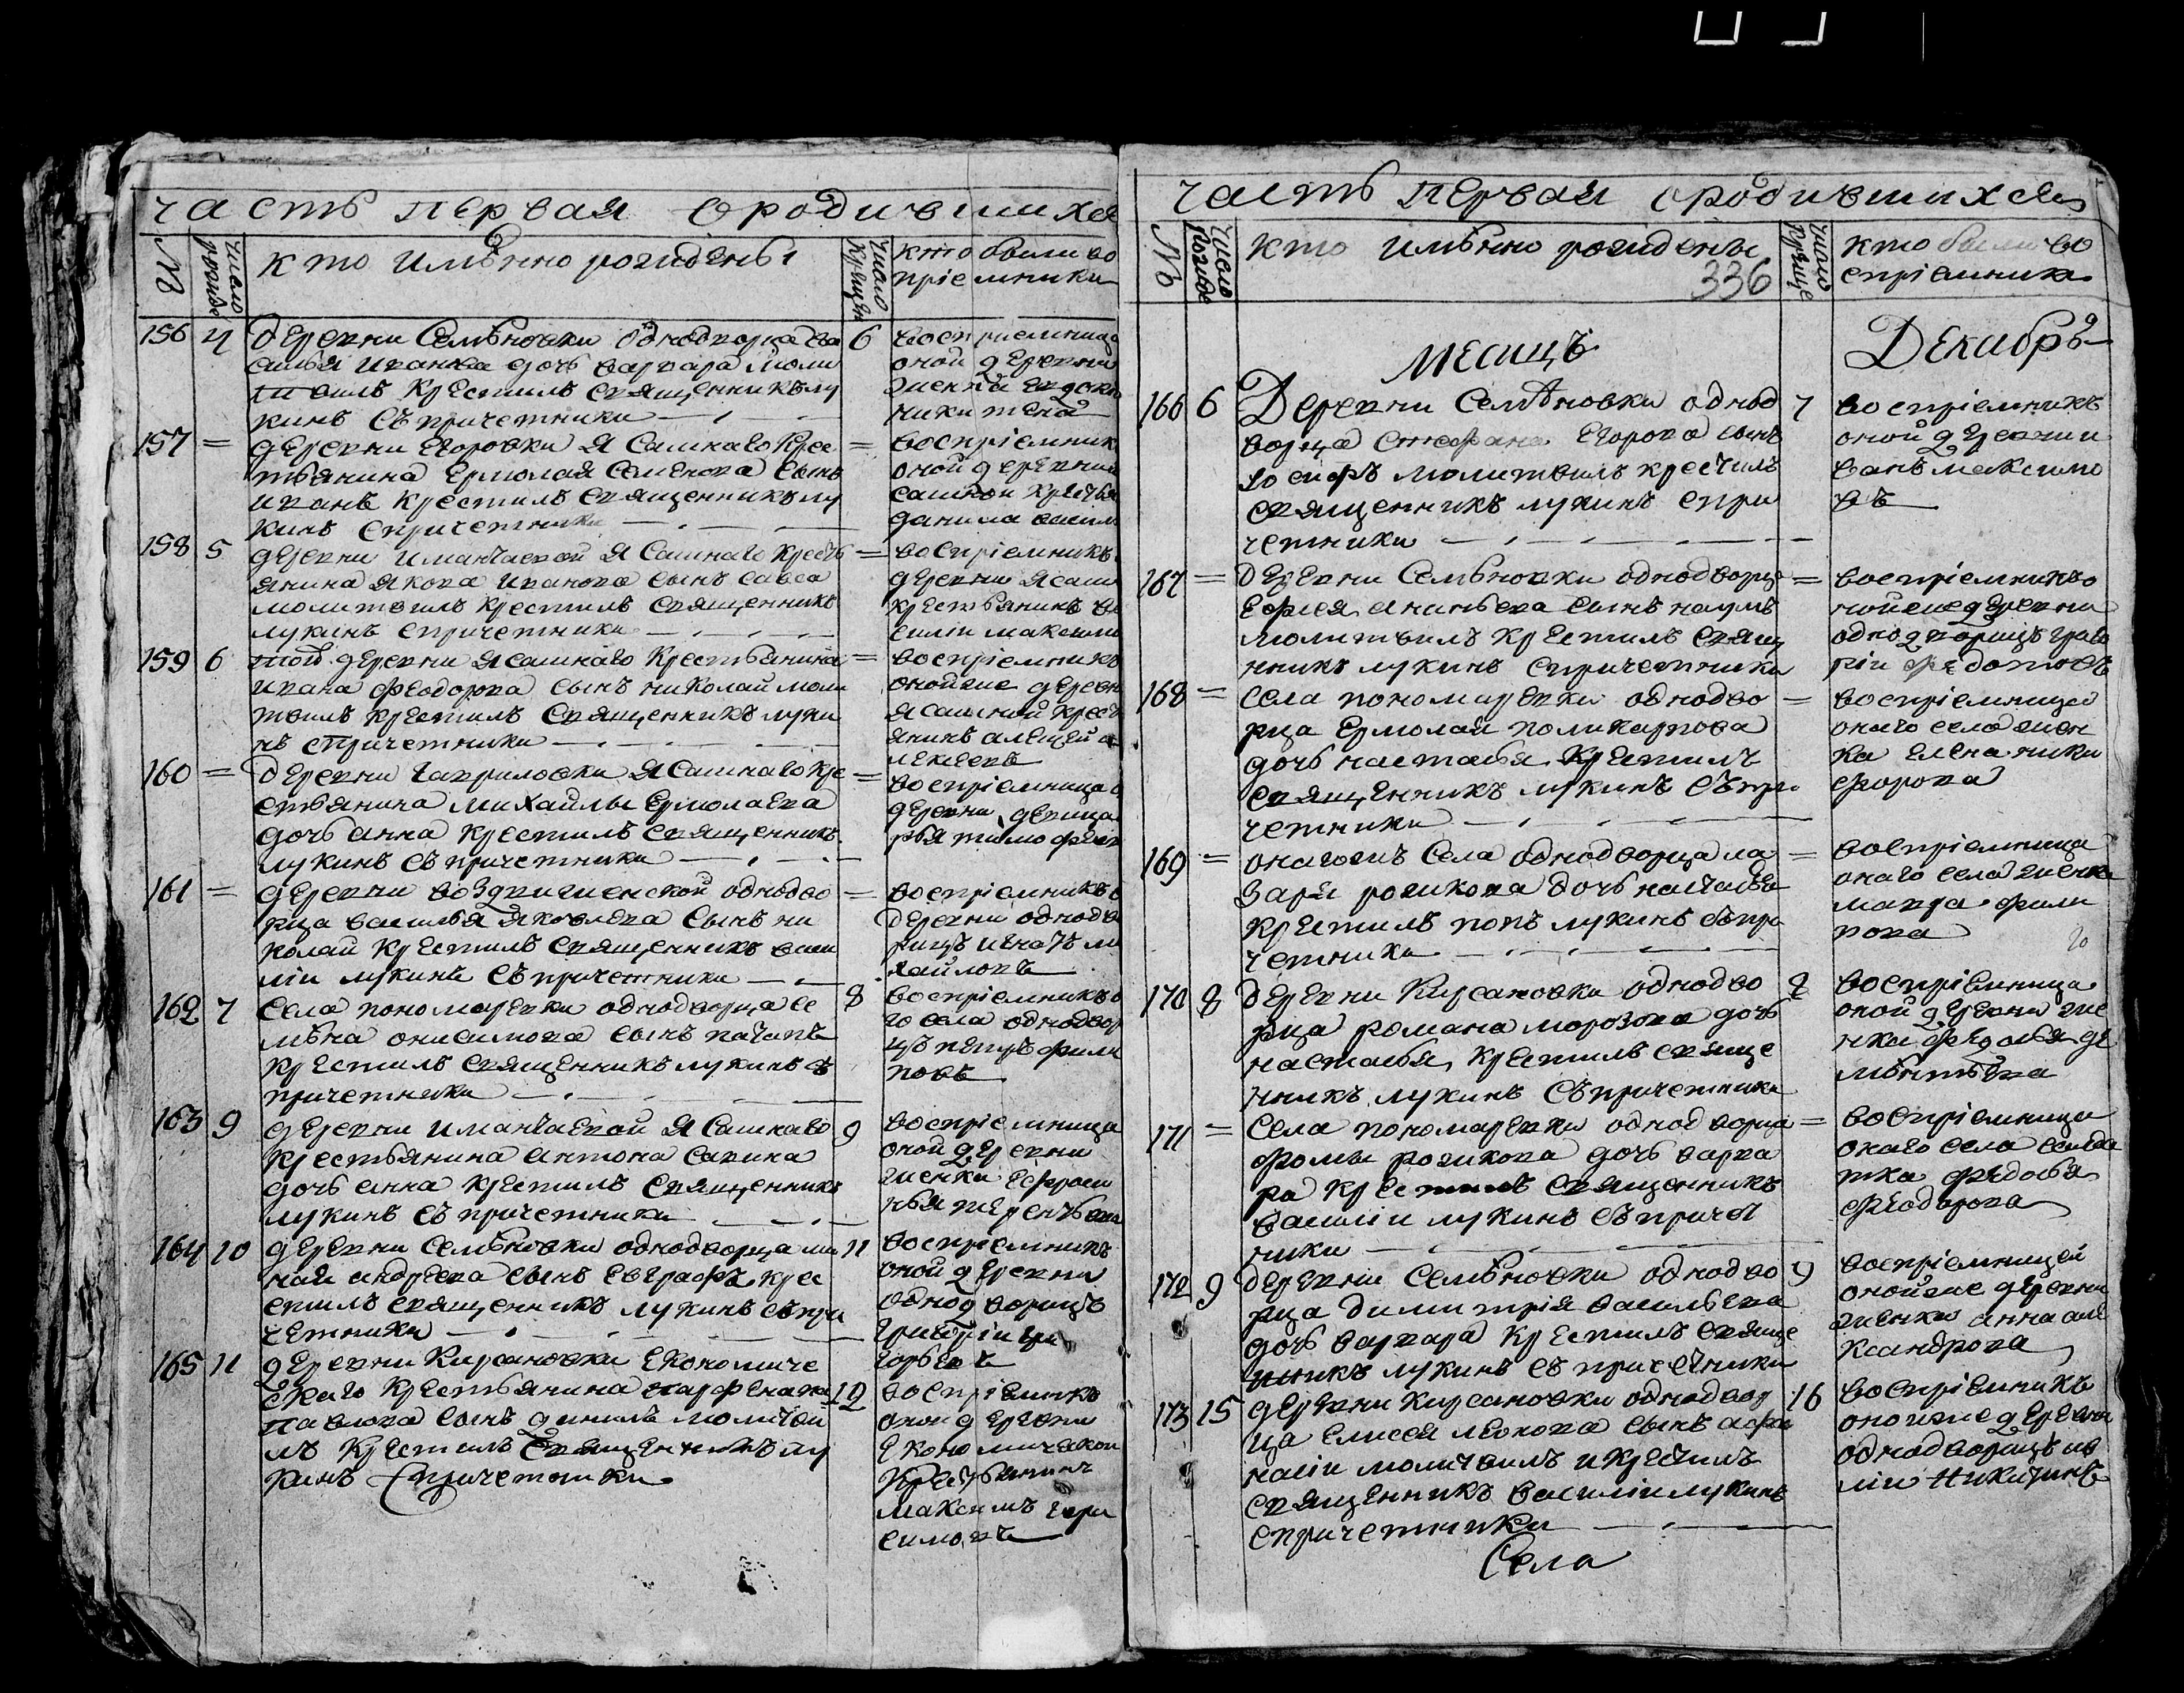 часть первая о родившихся
№
число рожде
кто имѣнно рождены
число креще
кто были во
пріемники
156 4 деревни Семѣновки однодворца ва
силья иванова дочь варвара моли
твилъ крестилъ священникъ лу
кинъ съ причетники
6 воспріемница
оной деревни
женка евдоки
никитена
157 = деревни Егоровки Ясашнаго крес
тьянина Ермолая Семенова сынъ
иванъ крестилъ священникъ лу
кинъ спричетники
= воспріемник
оной деревни
сашной крестья
данила васил
158 5 деревни иманчаевой Ясашнаго кресть
янина якова иванова сынъ савва
молитвилъ крестилъ священникъ
лукинъ спричетники
= воспріемникъ
деревни ясаш
крестьянинъ ва
силіи максимо
159 6 той деревни ясашнаго крестьянина
ивана феодорова сынъ николай моли
твилъ крестилъ священникъ луки
нъ спричетники
= воспріемникъ
онойже деревн
ясашной кресть
янинъ алецей а
лексеевъ
160 = деревни гавриловки ясашнаго кре
стьянина михайлы ермолаева
дочь анна крестилъ священникъ
лукинъ съ причетники
= воспріемница о
деревни девица
рья тимофеев
161 = деревни воздвиженской однодво
рца василья яковлева сынъ ни
колай крестилъ священникъ васи
ліи лукинъ съ причетники
= воспріемникъ о
деревни однодво
рицъ игнатъ ми
хайловъ
162 7 села пономаревки однодворца се
мѣна онисимова сынъ потапъ
крестилъ священникъ лукинъ съ
причетники
8 воспріемникъ о
го села однодвор
цъ петръ фили
повъ
163 9 деревни иманчаевой ясашнаго
крестьянина антона савина
дочь анна крестилъ священникъ
лукинъ съ причетники
9 воспріемница
оной деревни
женка ефроси
нья терентьева
164 10 деревни семѣновки однодворца ми
ная андреева сынъ евграфъ крес
стилъ священникъ лукинъ съ при
четники
11 воспріемникъ
оной деревни
однодворицъ
григоріи гри
горьевъ
165 11 деревни кирсановки економиче
скаго крестьянина парфена
павлова сынъ данилъ молитви
лъ крестилъ священникъ лу
кинъ спричетники
12 воспріемникъ
оной деревни
економической
крестьянинъ
максимъ гера
симовъ
часть первая о родившихся
№
число рожде
кто имѣнно рождены
336
число креще
кто были во
спріемника
месицъ Декабрь
166 6 Деревни Семѣновки однод
ворца стефана Егорова сынъ
иосифъ молитвилъ крестилъ
священникъ лукинъ спри
четники
7 воспріемникъ
оной деревни и
ванъ максимо
въ
167 = деревни Семѣновки однодворц
Ефрея ананьева сынъ наумъ
молитвилъ крестилъ свяще
нникъ лукинъ спричетники
= воспріемникъ о
нойже деревни
однодворицъ
гіи федотовъ
168 = села пономаревки однодво
рца Ермолая поликарпова
дочь настасья крестилъ
священникъ лукинъ съ при
четники
= воспріемница
онаго села жен
ка елена ники
форова
169 = онагожъ села однодворца ла
заря рожкова дочь настасья
крестилъ попъ лукинъ съ при
четники
= воспріемница
онаго села женка
марфа фили
пова
170 8 деревни Кирсановки однодво
рца романа морозова дочь
настасья крестилъ священ
нникъ лукинъ съ причетники
8 воспріемница
оной деревни же
нка федосья де
мѣнтьева
171 = Села пономаревки однодворца
фомы рожкова дочь варва
ра крестилъ священникъ
василіи лукинъ съ причет
ники
= воспріемница
онаго села солда
тка федосья
феодорова
172 9 деревни Семѣновки однодво
рца димитрія васильева
дочь варвара крестилъ свяще
нникъ лукинъ съ причетники
9 воспріемницей
онойже деревни
женка анна але
ксандрова
173 15 деревни кирсановки однодвор
ца елисея леонова сынъ афа
насіи молитвилъ и крестилъ
священникъ василіи лукинъ
спричетники
16 воспріемникъ
онойже деревни
однодворицъ
никитинъ
Села